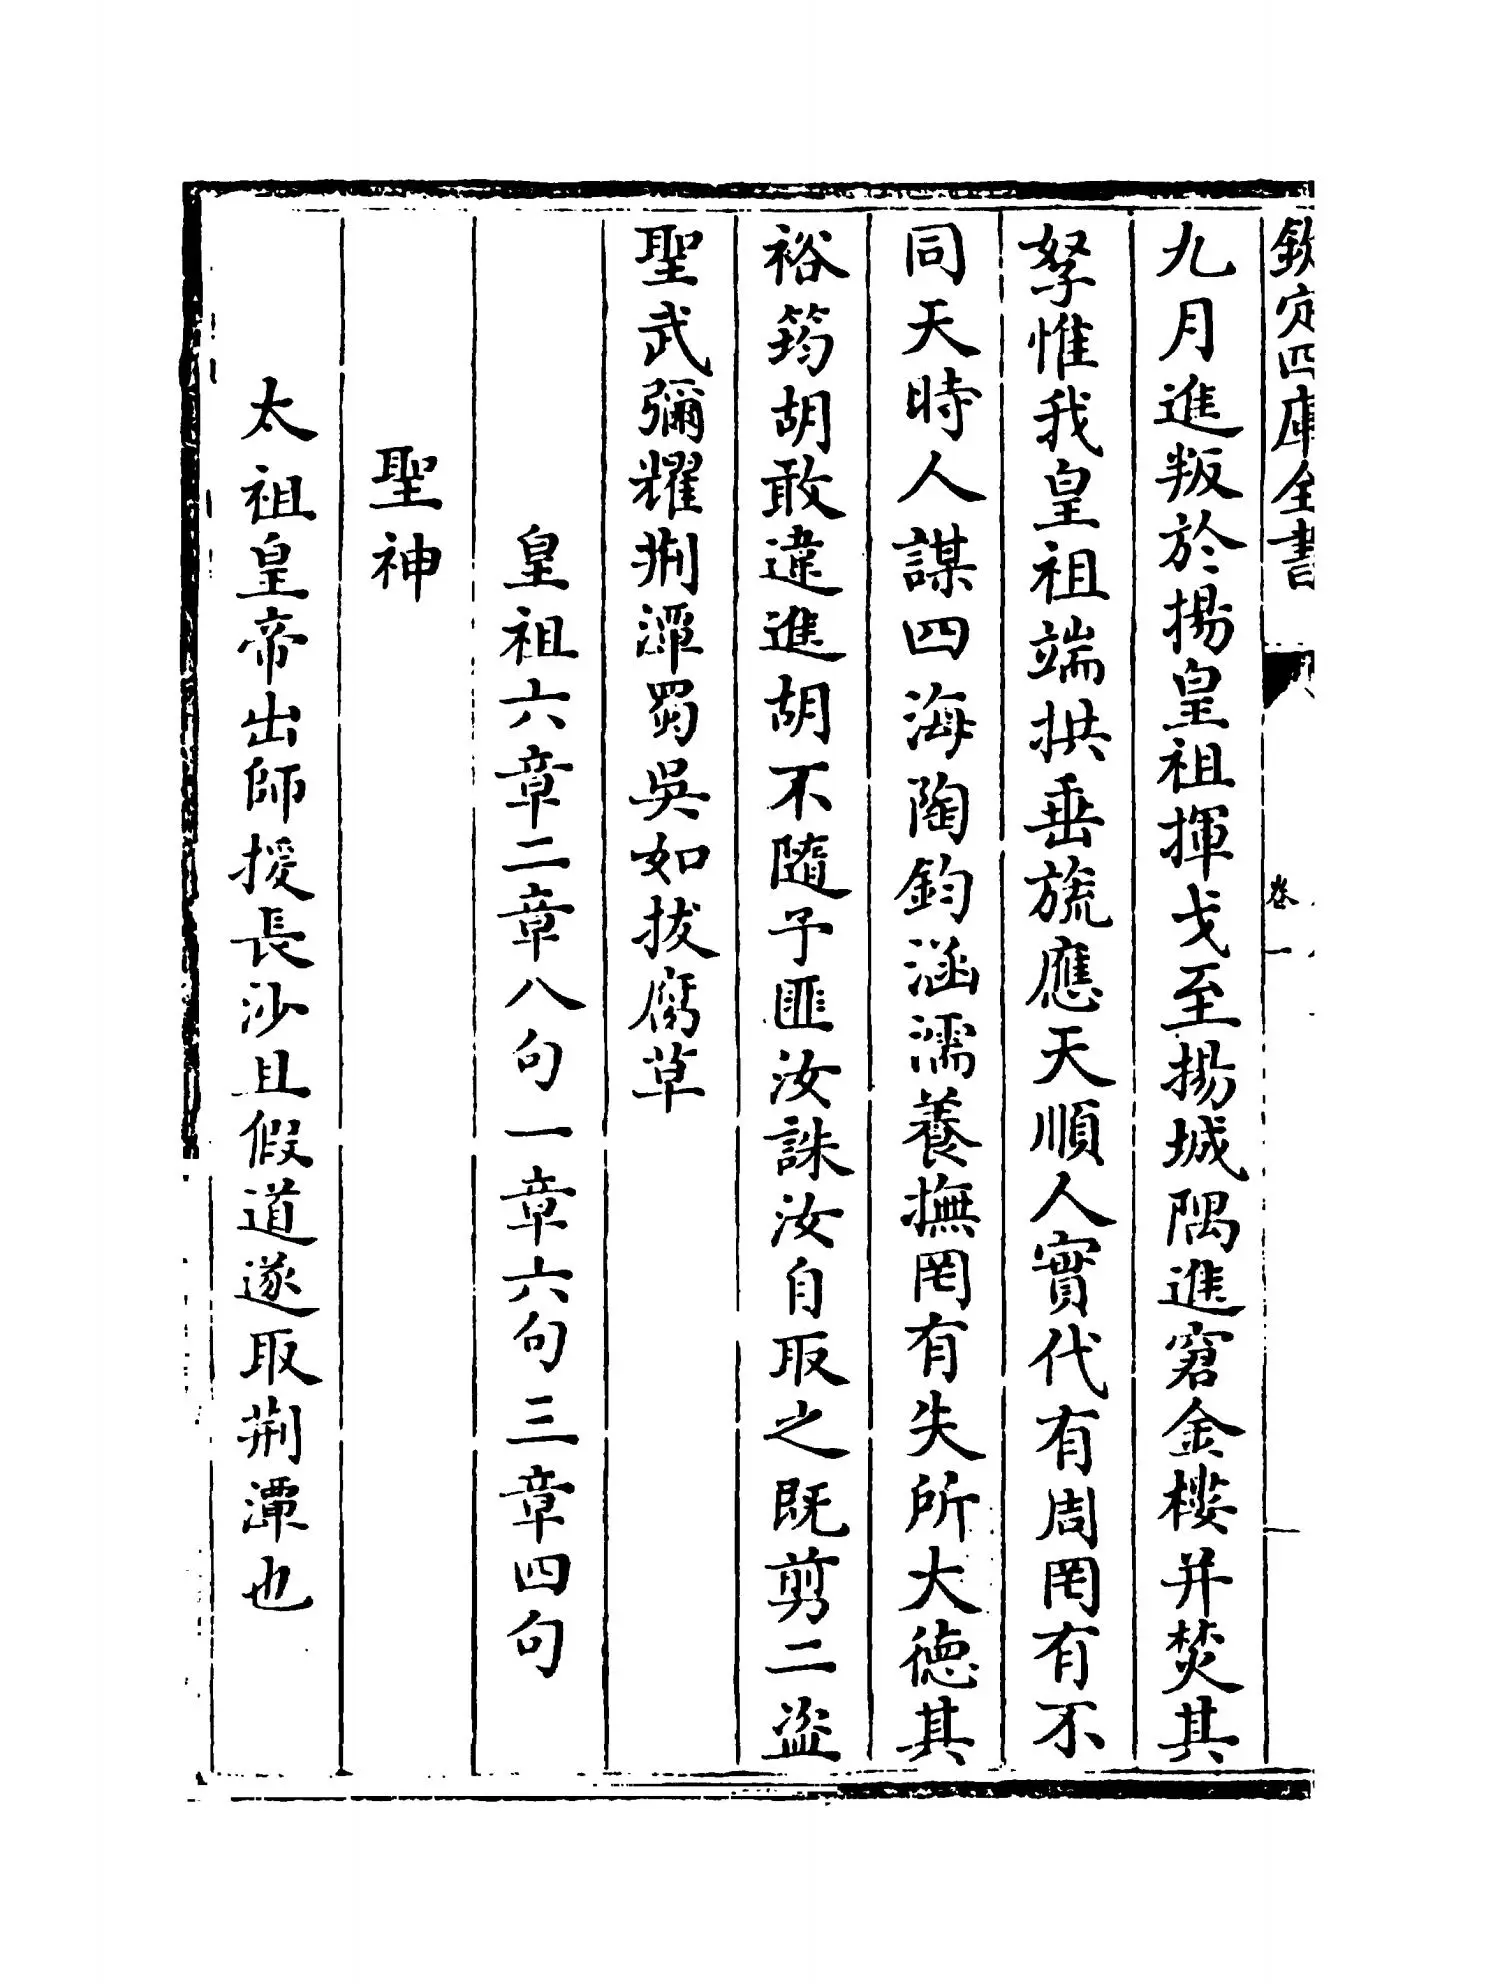 欽定四庫全書
卷一
九月進叛於揚皇祖揮戈至揚城隅進窘金樓并焚其
孥惟我皇祖端拱垂旒應天順人實代有周罔有不
同天時人謀四海陶鈞涵濡養撫罔有失所大德其
裕筠胡敢違進胡不隨予匪汝誅汝自取之既剪二盜
聖武彌耀荆潭蜀吳如拔腐草
皇祖六章二章八句一章六句三章四句
聖神
太祖皇帝出師援長沙且假道遂取荆潭也